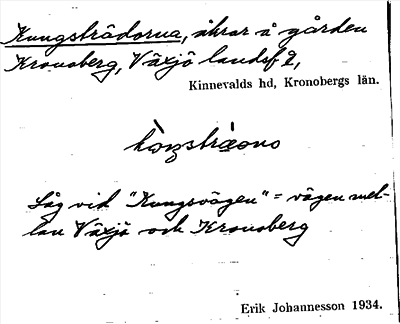 Kungsträdorna, åkrar å gården
Kronoberg, Växjö landsf,
Kinnevalds hd, Kronobergs län.
Låg vid "Kungsvägen" = vägen mel-
lan Växjö och Kronoberg
Erik Johannesson 1934.